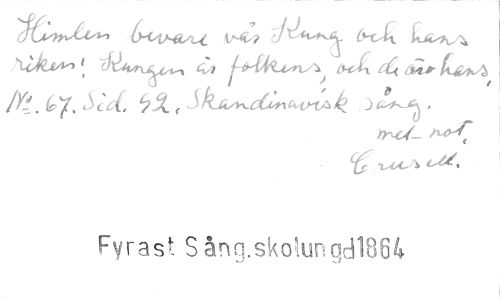 Himlen bevare vår Kung och hans
riken! Kungen är folkens, och de äro hans,
No. 67. Sid. 92. Skandinavisk sång.
met not,
Crusell.
Fyrast Sång.skolungd1864